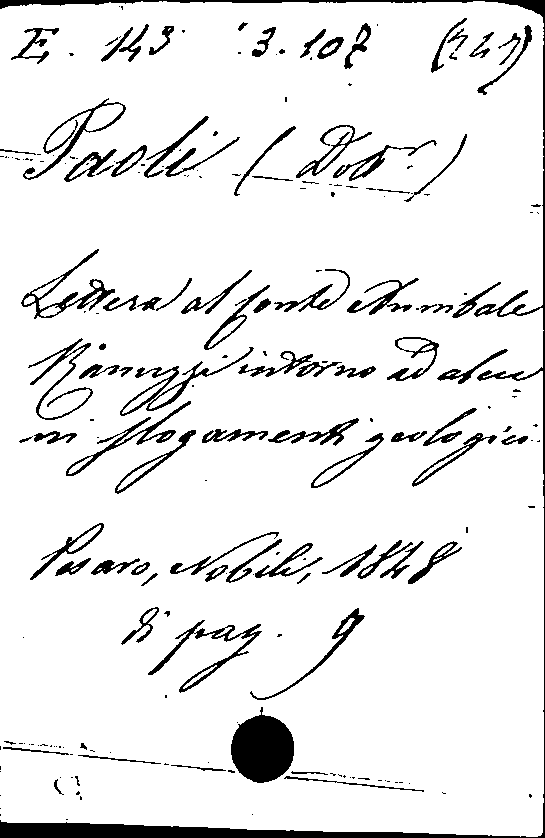 E. 143 3.107 (241)
Paoli (Dott.r)
Lettera al Conte Annibale
Ranuzzi intorno ad alcu=
ni slogamenti geologici
Pesaro, Nobili, 1848
di pag. 9
C